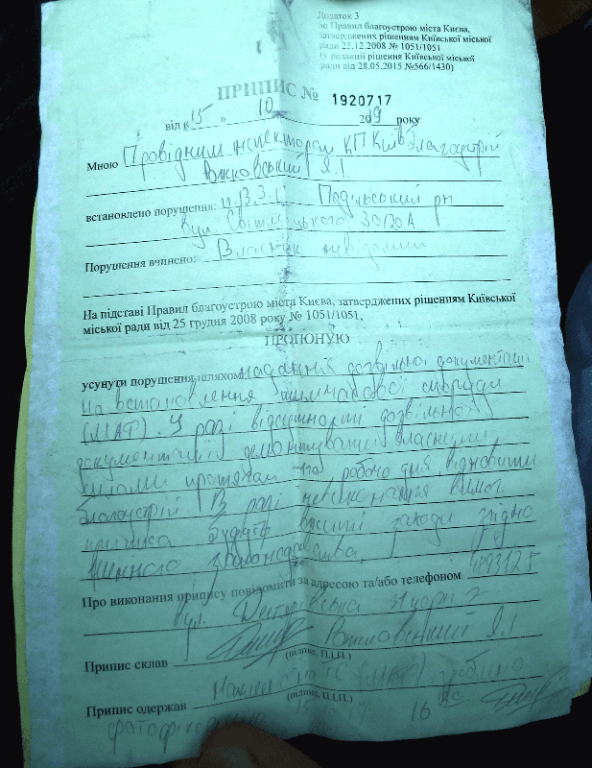 Додаток 3
до Правил благоустрою міста Києва,
затверджених рішенням Київської міської
ради 25.12.2008 № 1051/1051
(у редакції рішення Київської міської
ради від 28.05.2015 №566/1430)
ПРИПИС № 1920717
від « 15 » 10 2019 року
Мною Провідним інспектором КП Київблагоустрій
Я.І.
встановлено порушення: п. 13.3.1. Подільський рн
вул.
Порушення вчинено: Власник невідомий
На підставі Правил благоустрою міста Києва, затверджених рішенням Київської
міської ради від 25 грудня 2008 року № 1051/1051,
ПРОПОНУЮ
усунути порушення шляхом надання дозвільної документації
на встановлення тимчасової споруди
(МАФ). У разі відсутності дозвільної
документації демонтувати власними
силами протягом робочого дня, відновити
благоустрій. В разі невиконання вимог
припису будуть вжиті заходи згідно
чинного законодавства.
Про виконання припису повідомити за адресою та/або телефоном
вул. Дегтярівська 31 корп 2
Припис склав Я.І
(підпис, П.І.П.)
Припис одержав (МАФ) зроблено
(підпис, П.І.П.)
фотофіксацію 16